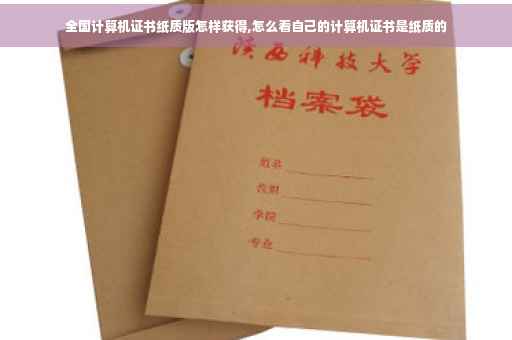 全国计算机证书纸质版怎样获得,怎么看自己的计算机证书是纸质的
陕西科技大学
档案袋
姓名
学院
专业